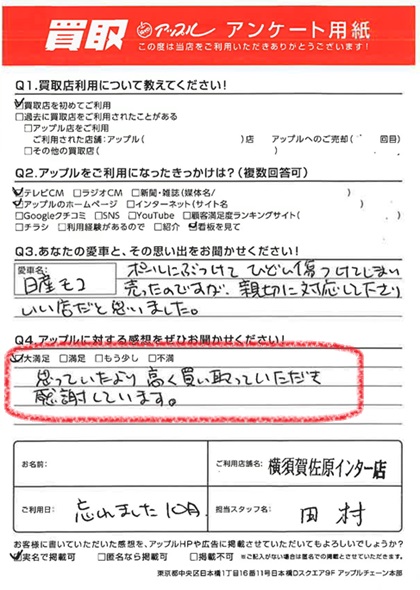 買取 アップル アンケート用紙
この度は当店をご利用いただきありがとうございます!
Q1.買取店利用について教えてください!
☑買取店を初めてご利用
□過去に買取店をご利用されたことがある
□アップル店をご利用
ご利用された店舗:アップル( )店 アップルへのご売却( 回目)
□その他の買取店( )
Q2.アップルをご利用になったきっかけは?(複数回答可)
☑テレビCM □ラジオCM □新聞・雑誌(媒体名/ )
☑アップルのホームページ □インターネット(サイト名 )
□Googleクチコミ □SNS □YouTube □顧客満足度ランキングサイト( )
□チラシ □利用経験があるので □紹介 ☑看板を見て
Q3.あなたの愛車と、その思い出をお聞かせください!
愛車名:
日産モコ
ポールにぶつけてひどい傷つけてしまい
売ったのですが、親切に対応して下さり
いい店だと思いました。
Q4.アップルに対する感想をぜひお聞かせください!
☑大満足 □満足 □もう少し □不満
思っていたより高く買い取っていただき
感謝しています。
お名前:
ご利用店舗名: 横須賀佐原インター店
ご利用日: 忘れました10月
担当スタッフ名: 田村
お客様に書いていただいた感想を、アップルHPや広告に掲載させていただいてもよろしいでしょうか?
☑実名で掲載可 □匿名なら掲載可 □掲載不可 ※ご記入がない場合は匿名での掲載とさせていただきます。
東京都中央区日本橋1丁目16番11号日本橋Dスクエア9F アップルチェーン本部